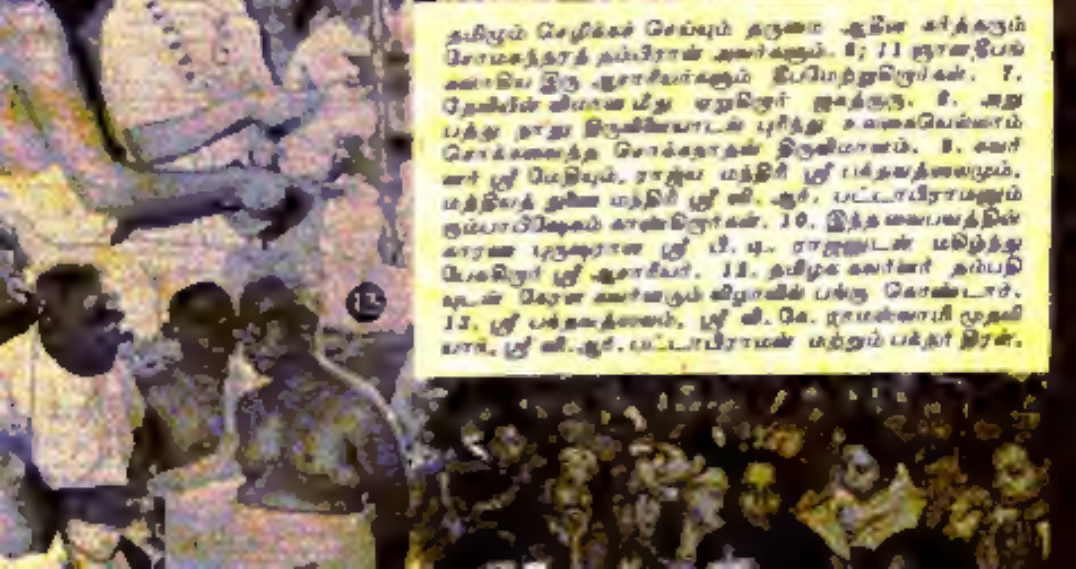 தமிழும் செழிக்கச் செய்யும் தருமை ஆதீன கர்த்தரும்
சோமசுந்தரத் தம்பிரான் அவர்களும். 6; 11 ஞானதீபங்
களாகிய இரு ஆசாரியர்களும் தீபமேற்றுகிறார்கள். 7.
தேவியின் விமான மீது ஏறுகிறார் ஜகத்குரு. 8. அறு
பத்து நாலு திருவிளையாடல் புரிந்து உலகையெல்லாம்
சொக்கவைத்த சொக்கநாதன் திருவிமானம். 9. கவர்
னர் ஸ்ரீ மேதியும், ராஜ்ய மந்திரி ஸ்ரீ பக்தவத்ஸலமும்,
மத்தியத் துணை மந்திரி ஸ்ரீ வி. ஆர். பட்டாபிராமனும்
கும்பாபிஷேகம் காண்கிறார்கள். 10. இந்த வைபவத்தின்
காரண புருஷரான ஸ்ரீ பி. டி. ராஜனுடன் மகிழ்ந்து
பேசுகிறார் ஸ்ரீ ஆசாரியர். 12. தமிழக கவர்னர் தம்பதி
யுடன் கேரள கவர்னரும் விழாவில் பங்கு கொண்டார்.
13. ஸ்ரீ பக்தவத்ஸலம், ஸ்ரீ வி. கே. ராமஸ்வாமி முதலி
யார், ஸ்ரீ வி. ஆர். பட்டாபிராமன் மற்றும் பக்தர் திரள்.
13